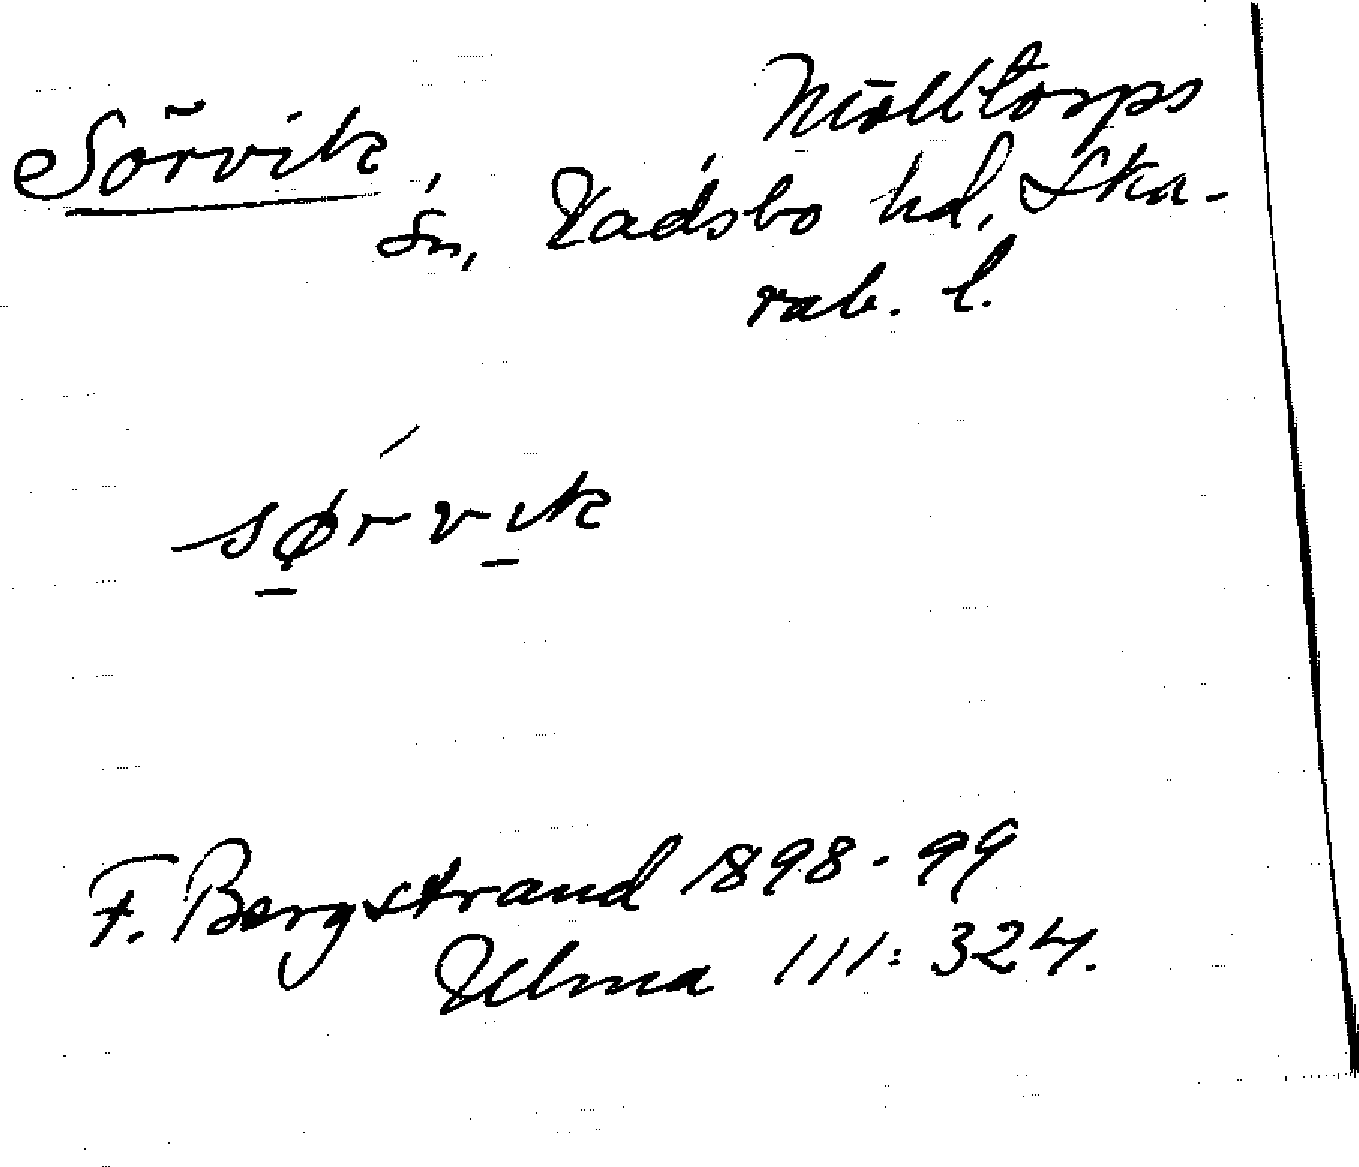 Sörvik, Mölltorps
sn, Vadsbo hd, Ska-
rab. l.
sørvık
F. Bergstrand 1898-99
Ulma 111:324.